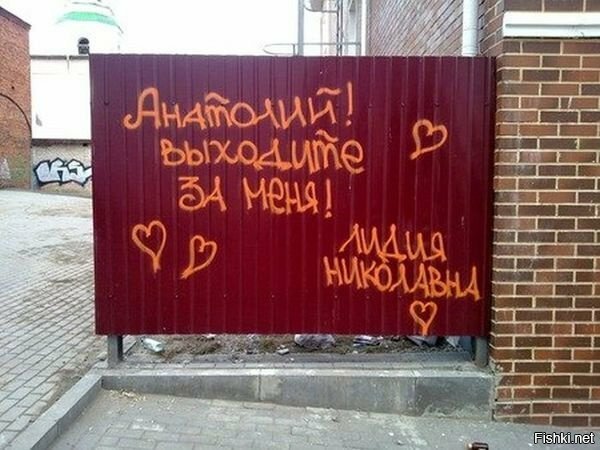 Анатолий!
выходите
за меня!
Лидия
Николавна
Fishki.net